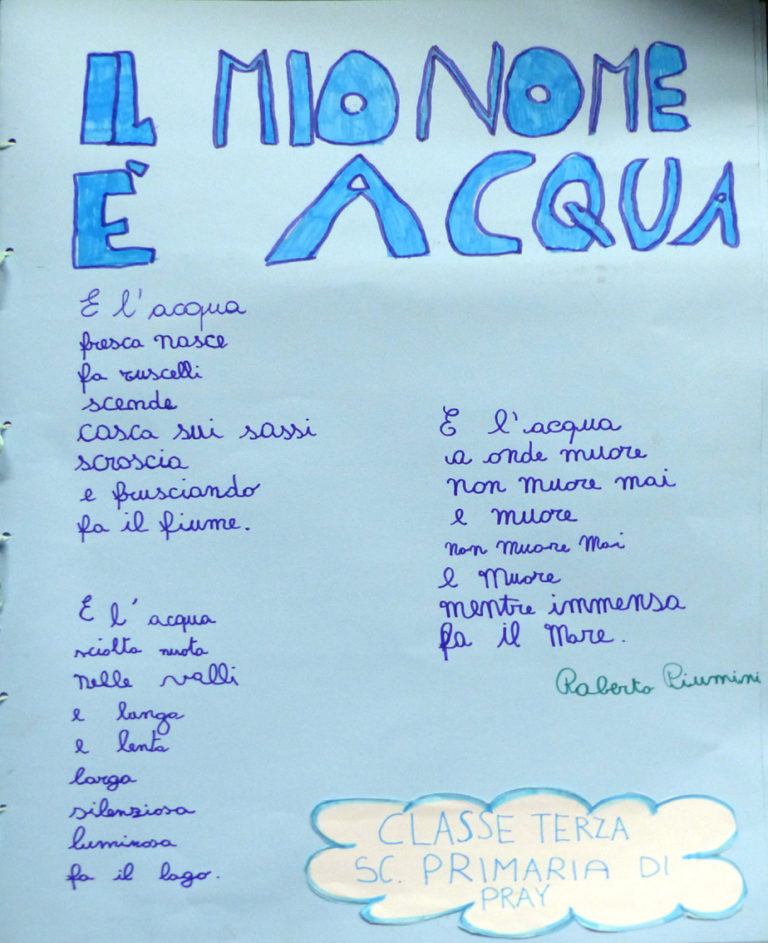 IL MIO NOME
È ACQUA
E l'acqua
fresca nasce
fa ruscelli
scende
casca sui sassi
scroscia
e frusciando
fa il fiume.
E l'acqua
sciolta nuota
nelle valli
e lunga
e lenta
larga
silenziosa
luminosa
fa il lago.
E l'acqua
a onde muore
non muore mai
e muore
non muore mai
e muore
mentre immensa
fa il mare.
Roberto Piumini
CLASSE TERZA
SC. PRIMARIA DI
PRAY